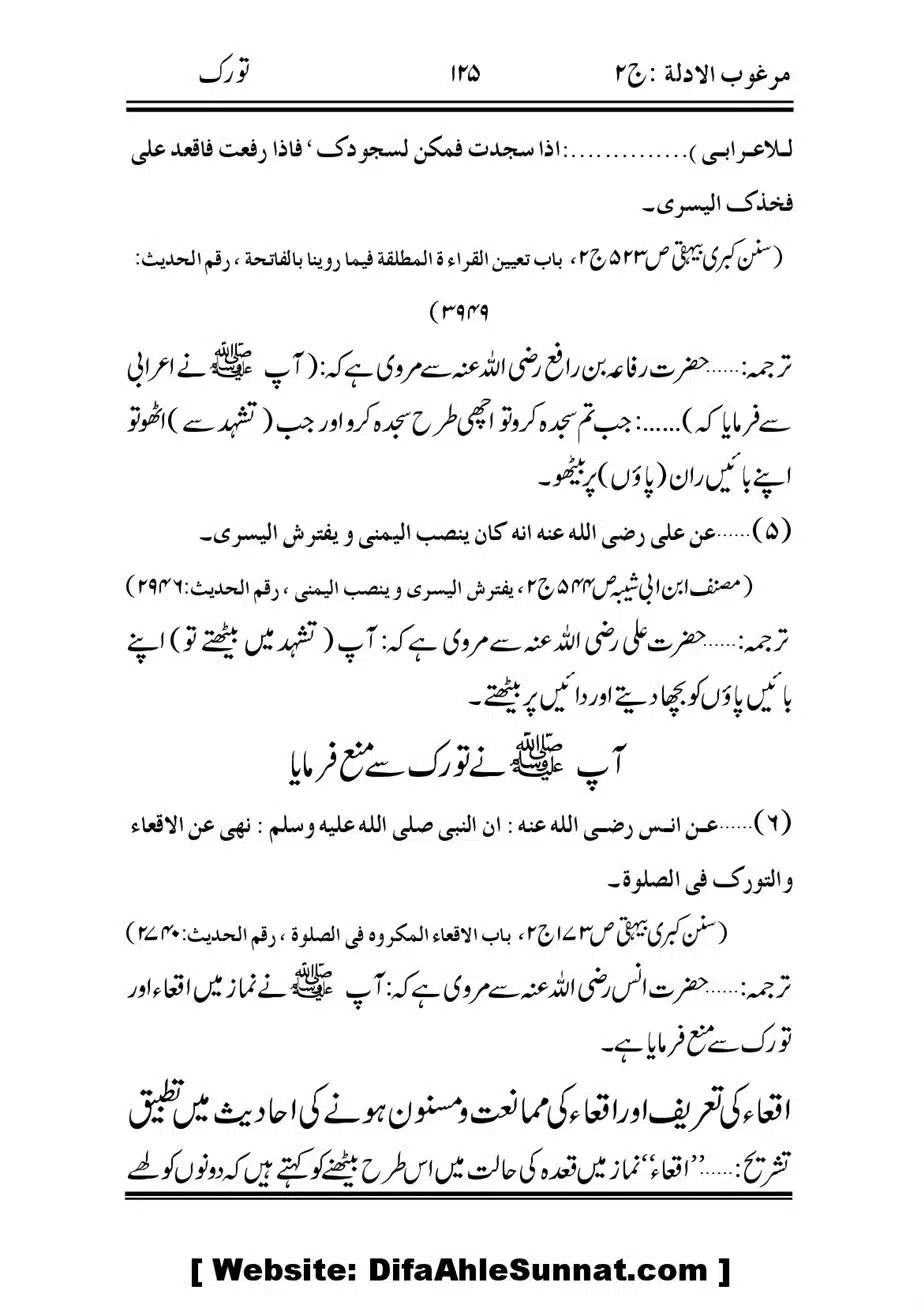 مرغوب الادلة :ج۲ ۱۲۵ تورک
لـلاعـرابـی )..............:اذا سجدت فمکن لسجودک ‘ فاذا رفعت فاقعد علی
فخذک الیسری۔
(سنن کبری بیہقی ص۵۲۳ج۲، باب تعیین القراء ة المطلقة فیما روینا بالفاتحة ، رقم الحدیث:
۳۹۴۹)
ترجمہ:......حضرت رفاعہ بن رافع رضی اللہ عنہ سے مروی ہے کہ:(آپ ﷺ نے اعرابی
سے فرمایا کہ)......:جب تم سجدہ کرو تو اچھی طرح سجدہ کرو اور جب (تشہد سے)اٹھو تو
اپنے بائیں ران (پاؤں)پر بیٹھو۔
(۵)......عن علی رضی الله عنه انه کان ینصب الیمنی و یفترش الیسری۔
(مصنف ابن ابی شیبہ ص۵۴۴ج۲، یفترش الیسری و ینصب الیمنی ، رقم الحدیث:۲۹۴۶)
ترجمہ:......حضرت علی رضی اللہ عنہ سے مروی ہے کہ: آپ (تشہد میں بیٹھتے تو) اپنے
بائیں پاؤں کو بچھا دیتے اور دائیں پر بیٹھتے۔
آپ ﷺ نے تورک سے منع فرمایا
(۶)......عـن انـس رضـی الله عنه : ان النبی صلی الله علیه وسلم : نهی عن الاقعاء
و التورک فی الصلوة۔
(سنن کبری بیہقی ص۱۷۳ج۲، باب الاقعاء المکروه فی الصلوة ، رقم الحدیث:۲۷۴۰)
ترجمہ:......حضرت انس رضی اللہ عنہ سے مروی ہے کہ: آپ ﷺ نے نماز میں اقعاء اور
تورک سے منع فرمایا ہے۔
اقعاء کی تعریف اور اقعاء کی ممانعت و مسنون ہونے کی احادیث میں تطبیق
تشریح:......’’اقعاء‘‘ نماز میں قعدہ کی حالت میں اس طرح بیٹھنے کو کہتے ہیں کہ دونوں کولھے
[ Website: DifaAhleSunnat.com ]